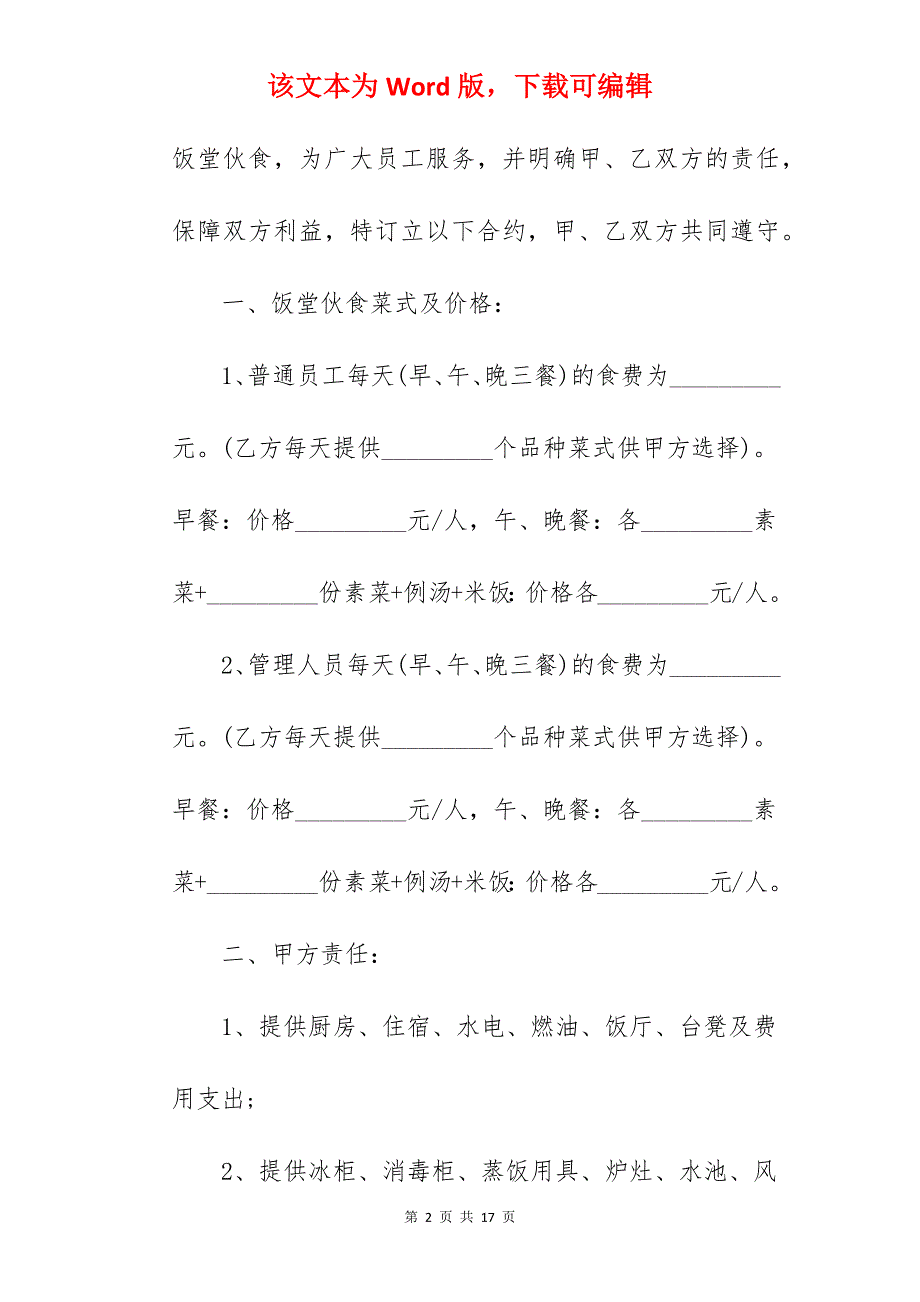 该文本为 Word 版，下载可编辑
饭堂伙食，为广大员工服务，并明确甲、乙双方的责任，
保障双方利益，特订立以下合约，甲、乙双方共同遵守。
一、饭堂伙食菜式及价格：
1、普通员工每天(早、午、晚三餐)的食费为_________
元。(乙方每天提供_________个品种菜式供甲方选择)。
早餐：价格_________元/人，午、晚餐：各_________素
菜+_________份素菜+例汤+米饭：价格各_________元/人。
2、管理人员每天(早、午、晚三餐)的食费为_________
元。(乙方每天提供_________个品种菜式供甲方选择)。
早餐：价格_________元/人，午、晚餐：各_________素
菜+_________份素菜+例汤+米饭：价格各_________元/人。
二、甲方责任：
1、提供厨房、住宿、水电、燃油、饭厅、台凳及费
用支出;
2、提供冰柜、消毒柜、蒸饭用具、炉灶、水池、风
第 2 页 共 17 页